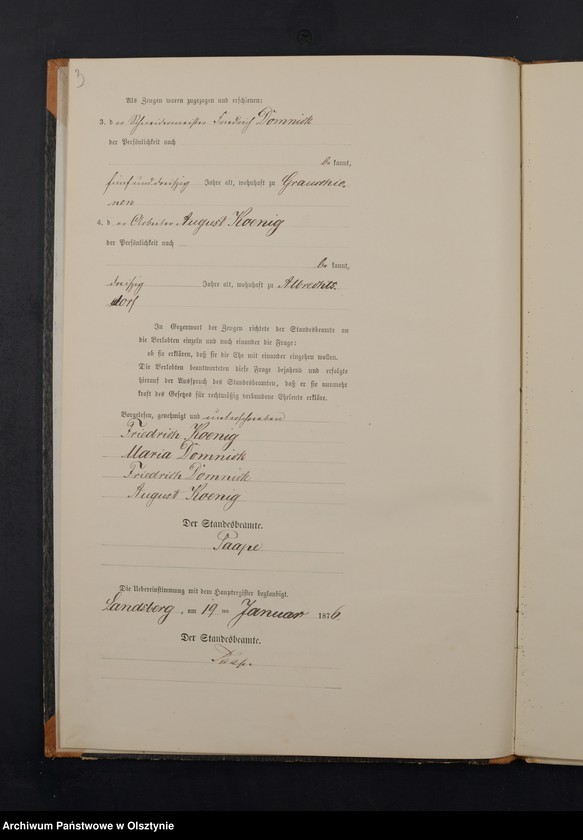 3
Als Zeugen waren zugezogen und erschienen:
3. der Schneidermeister Friedrich Domnick
der Persönlichkeit nach
be kannt,
fünfunddreißig Jahre alt, wohnhaft zu Grauschie-
nen
4. der Arbeiter August Koenig
der Persönlichkeit nach
be kannt,
dreißig Jahre alt, wohnhaft zu Albrechts-
dorf
In Gegenwart der Zeugen richtete der Standesbeamte an
die Verlobten einzeln und nach einander die Frage:
ob sie erklären, daß sie die Ehe mit einander eingehen wollen.
Die Verlobten beantworteten diese Frage bejahend und erfolgte
hierauf der Ausspruch des Standesbeamten, daß er sie nunmehr
kraft des Gesetzes für rechtmäßig verbundene Eheleute erkläre.
Vorgelesen, genehmigt und unterschrieben
Friedrich Koenig
Maria Domnick
Friedrich Domnick
August Koenig
Der Standesbeamte.
Paape
Die Uebereinstimmung mit dem Hauptregister beglaubigt.
Landsberg, am 19 ten Januar 1876.
Der Standesbeamte.
Paape
Archiwum Państwowe w Olsztynie